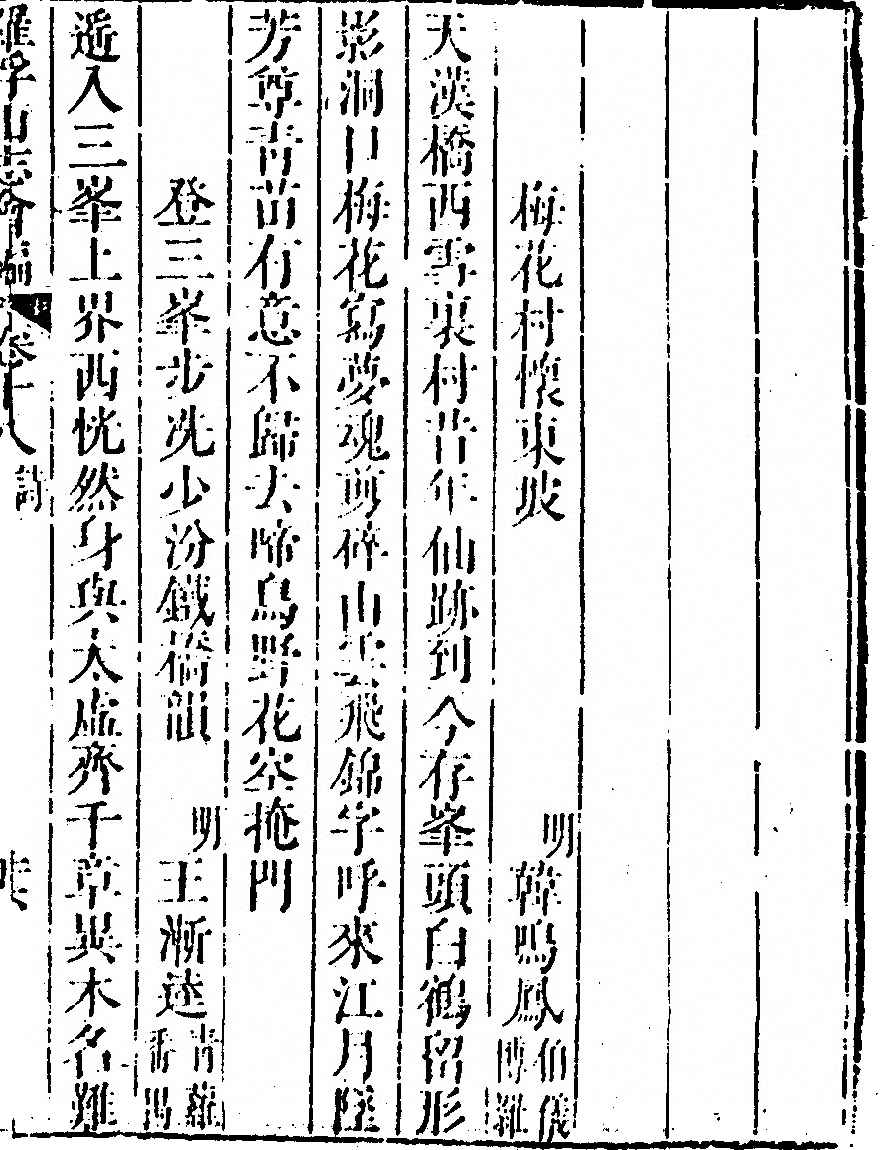 梅花村懷東坡 明韓鳴鳳伯儀博羅
天漢橋西雪裏村昔年仙跡到今存峯頭白鶴留形
影洞口梅花寫夢魂剪碎山雲飛錦字呼來江月墜
芳尊青苗有意不歸去啼鳥野花空掩門
登三峯步冼少汾鐵橋韻 明王漸逵青蘿番禺
遥入三峯上界西恍然身與太虛齊千章異木名難
羅浮山志會編卷十八 詩